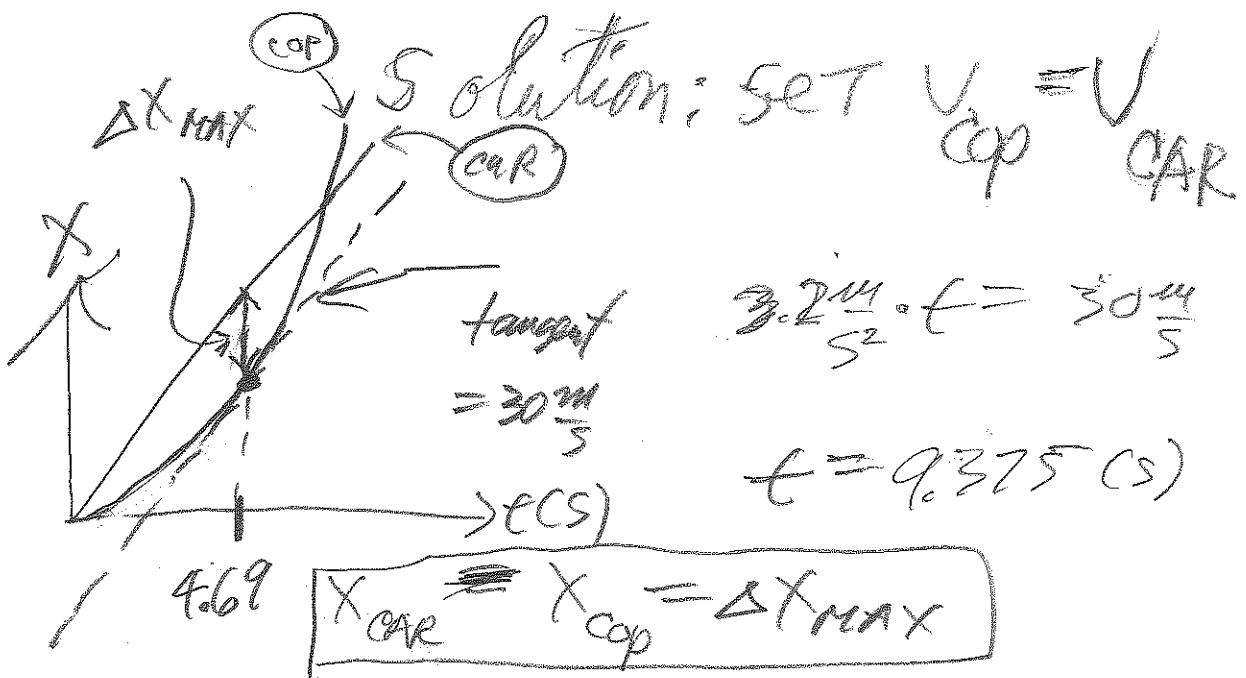 cop
Solution: SET V_cop = V_CAR
ΔX_MAX
caR
X
tangent
= 30 m/s
3.2 m/s² · t = 30 m/s
t = 9.375 (s)
t(s)
4.69
X_CAR = X_cop = ΔX_MAX